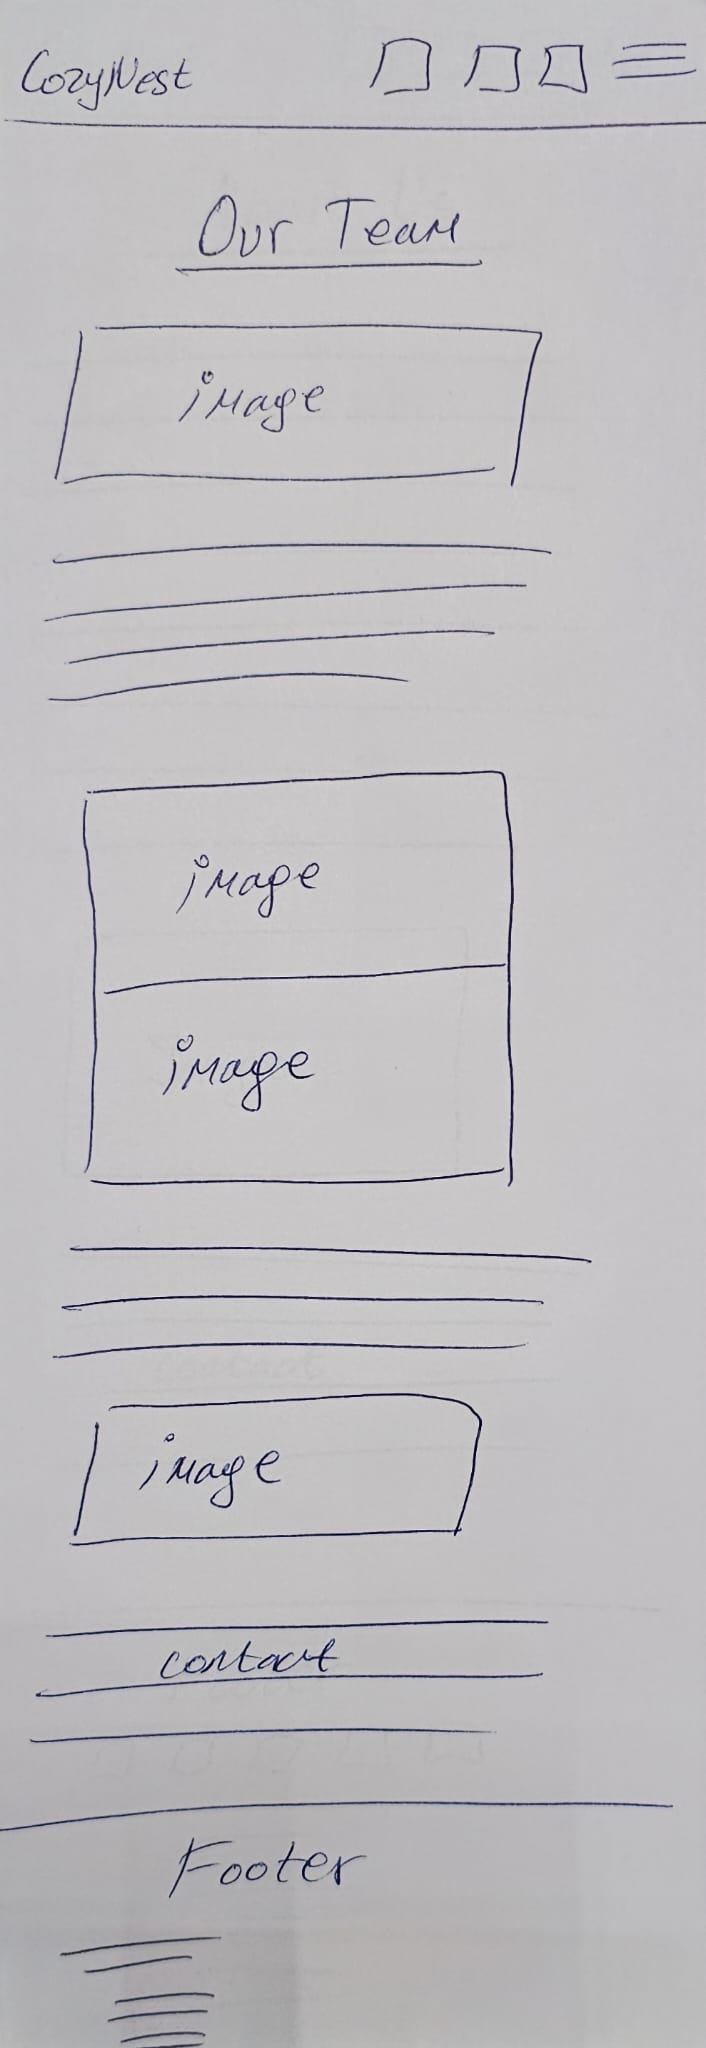 CozyNest
Our Team
image
image
image
image
contact
Footer